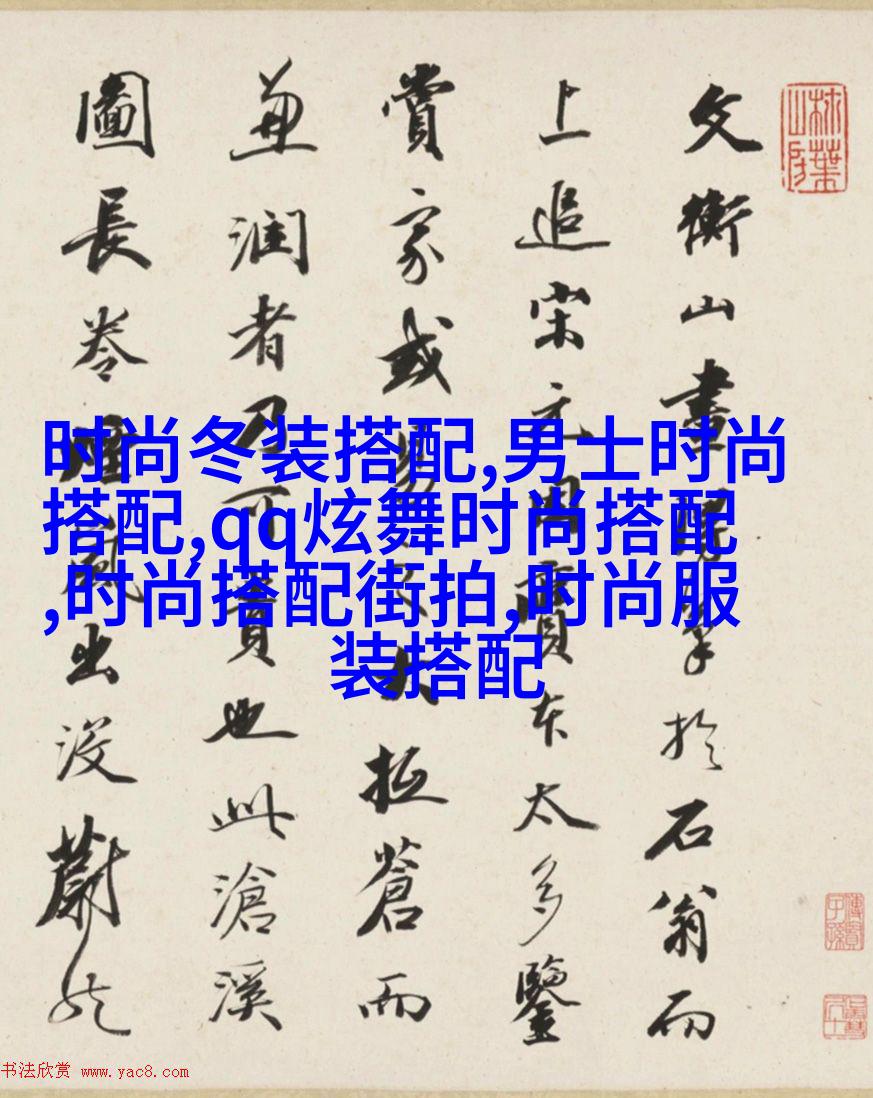 文衡山畫筆於石翁而
上追宋元贗本太多鑒
賞家或蒼而
兼润者乃可貴也此滄溪
圖長卷出没蔚然
时尚冬装搭配,男士时尚
搭配,qq炫舞时尚搭配
,时尚搭配街拍,时尚服
装搭配
书法欣赏 www.yac8.com